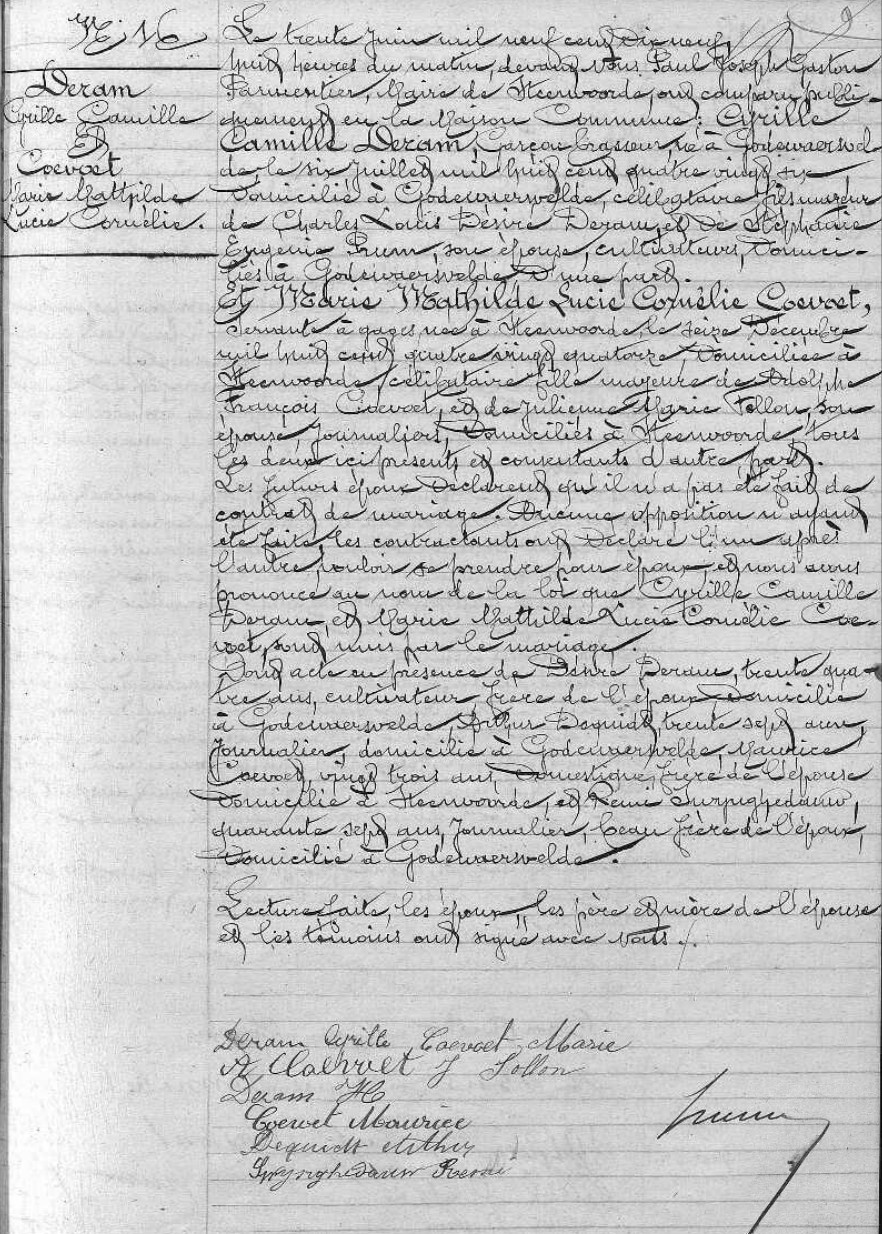 N. 16
9
Deram
Cyrille Camille
Et
Coevoet
Marie Mathilde
Lucie Cornélie.
Le trente Juin mil neuf cent dix neuf,
huit heures du matin, devant Nous Paul Joseph Gaston
Parmentier, Maire de Steenvoorde, ont comparu publi-
quement en la Maison Commune: Cyrille
Camille Deram, Garçon brasseur, né à Godewaersvel-
de, le six Juillet mil huit cent quatre vingt six
Domicilié à Godewaersvelde, célibataire, fils majeur
de Charles Louis Désiré Deram, et de Stéphanie
Eugenie Prum, son épouse, cultivateurs, Domici-
liés à Godewaersvelde, D'une part.
Et, Marie Mathilde Lucie Cornélie Coevoet,
Servante à gages, née à Steenvoorde, le seize Décembre
mil huit cent quatre vingt quatorze, Domiciliée à
Steenvoorde, célibataire, fille majeure de Adolphe
François Coevoet, et de Julienne Marie Follon, son
épouse, Journaliers, Domiciliés à Steenvoorde, tous
les deux ici présents et consentants d'autre part.
Les futurs époux Déclarent qu'il n'a pas été fait de
contrat de mariage. Aucune opposition n'ayant
été faite, les contractants ont Déclaré l'un après
l'autre, vouloir se prendre pour époux, et nous avons
prononcé au nom de la loi que Cyrille Camille
Deram, et Marie Mathilde Lucie Cornélie Coe-
voet, sont unis par le mariage.
Dont acte en présence de Désiré Deram, trente qua-
tre ans, cultivateur, frère de l'époux, Domicilié
à Godewaersvelde, Arthur Dequidt, trente sept ans,
Journalier, domicilié à Godewaersvelde, Maurice
Coevoet, vingt trois ans, Domestique, frère de l'épouse
Domicilié à Steenvoorde, et Remi
quarante sept ans, Journalier, beau frère de l'époux,
Domicilié à Godewaersvelde.
Lecture faite, les époux, les père et mère de l'épouse
et les témoins ont signé avec Nous.
Deram Cyrille Coevoet Marie
A Coevoet J Follon
Deram
Coevoet Maurice
Dequidt Arthur
Remi